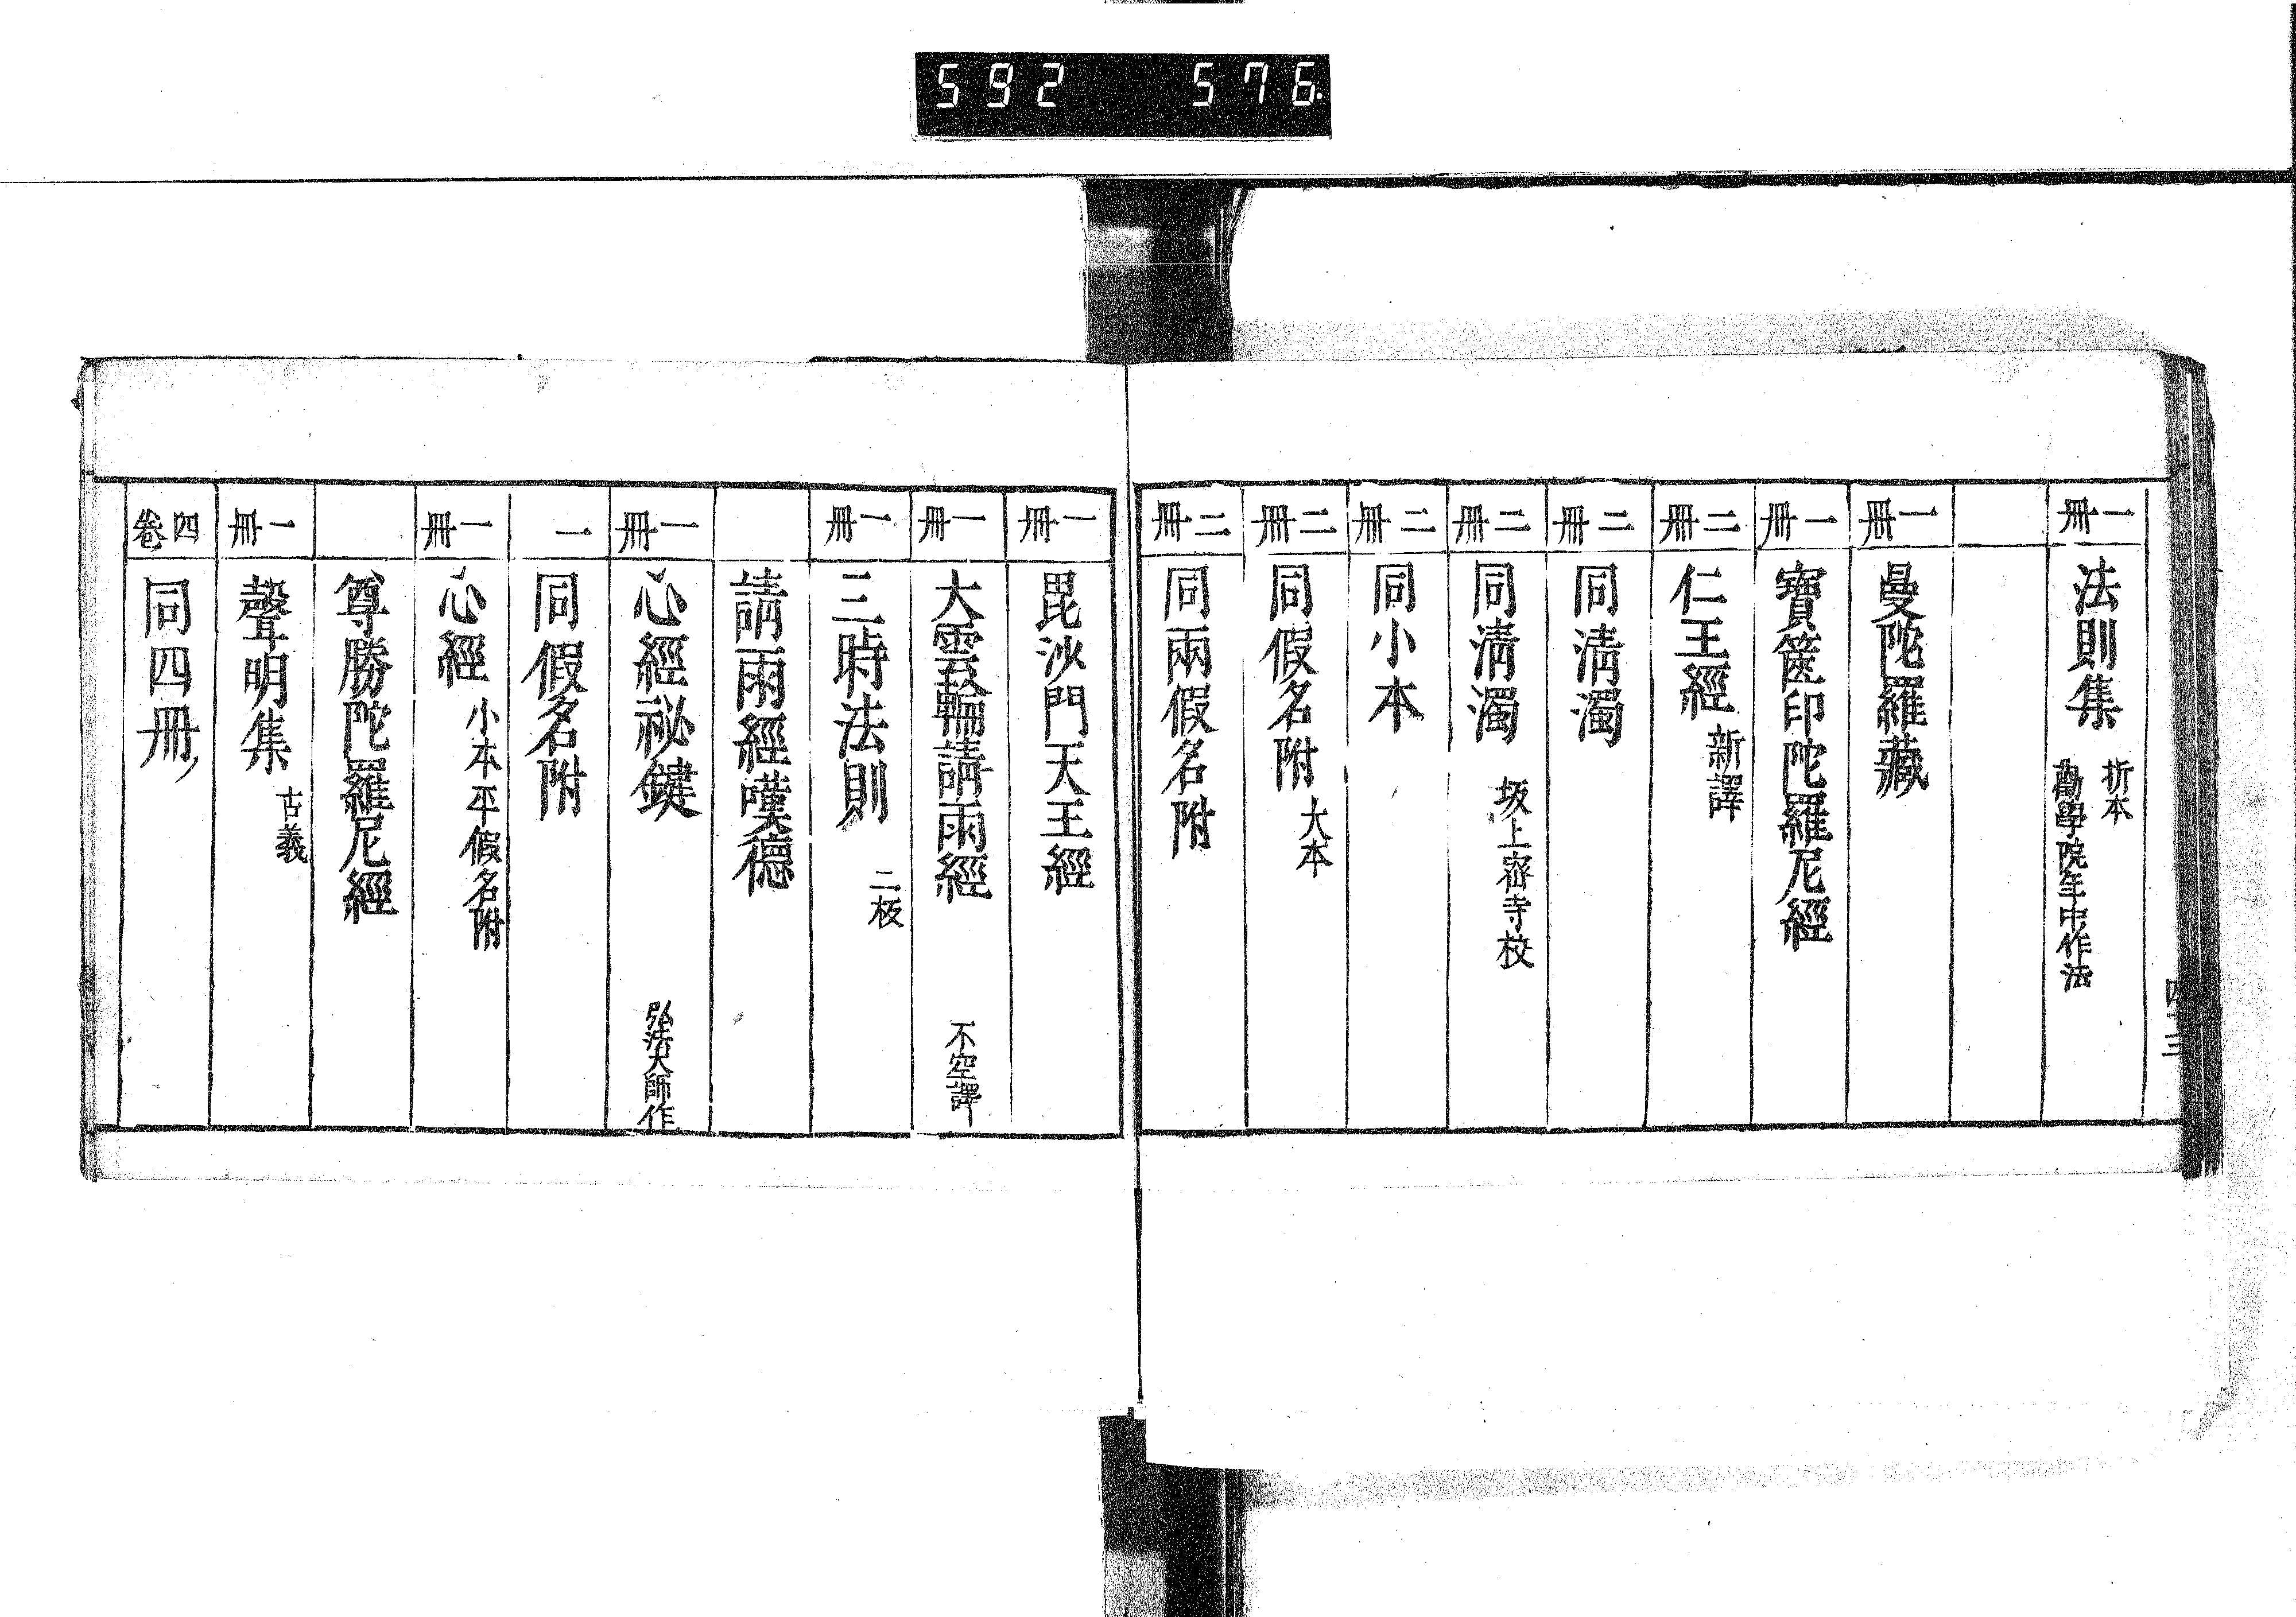 592 576.
四ノ三
一冊 法則集 折本 勸學院年中作法
一冊 曼陀羅藏
一冊 寶篋印陀羅尼經
二冊 仁王經 新譯
二冊 同清濁
二冊 同清濁 坂上密寺校
二冊 同小本
二冊 同假名附 大本
二冊 同兩假名附
一冊 毘沙門天王經
一冊 大雲輪請雨經 不空譯
一冊 三時法則 二板
請雨經嘆德
一冊 心經祕鍵 弘法大師作
一 同假名附
一冊 心經 小本平假名附
尊勝陀羅尼經
一冊 聲明集 古義
四卷 同四冊